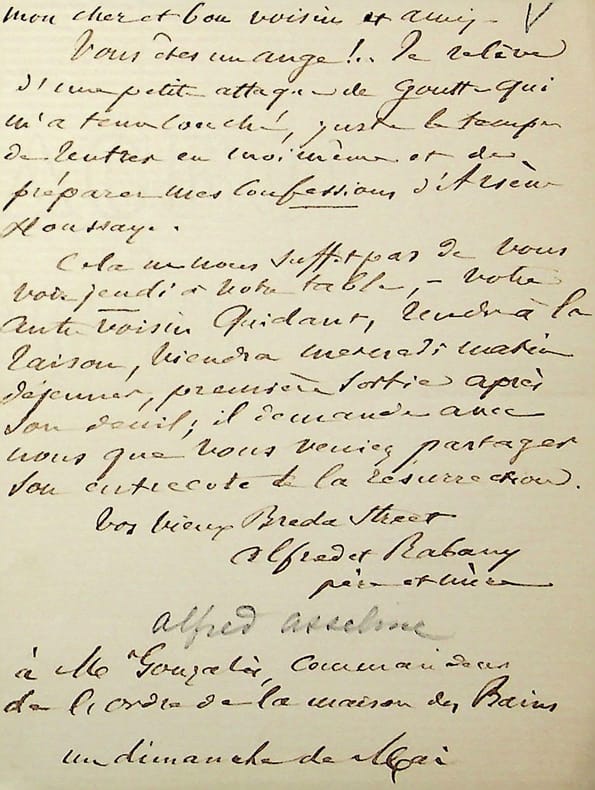 mon cher et bon voisin et ami,
Vous êtes un ange!.. Je relève
d'une petite attaque de Goutte qui
m'a tenu couché, juste le temps
de rentrer en moi même et de
préparer mes Confessions d'Arsène
Houssaye.
Cela ne nous suffit pas de vous
voir jeudi à notre table, - votre
autre voisin Quidant, rendu à la
raison, viendra mercredi matin
déjeuner, première sortie après
son deuil; il demande avec
nous que vous veniez partager
son entrecote de la résurrection.
Vos vieux Breda Street
Alfred et Rabany
père et mère
Alfred Asseline
à Mr Gonzalès, commandeur
de l'ordre de la maison des Bains
un dimanche de Mai